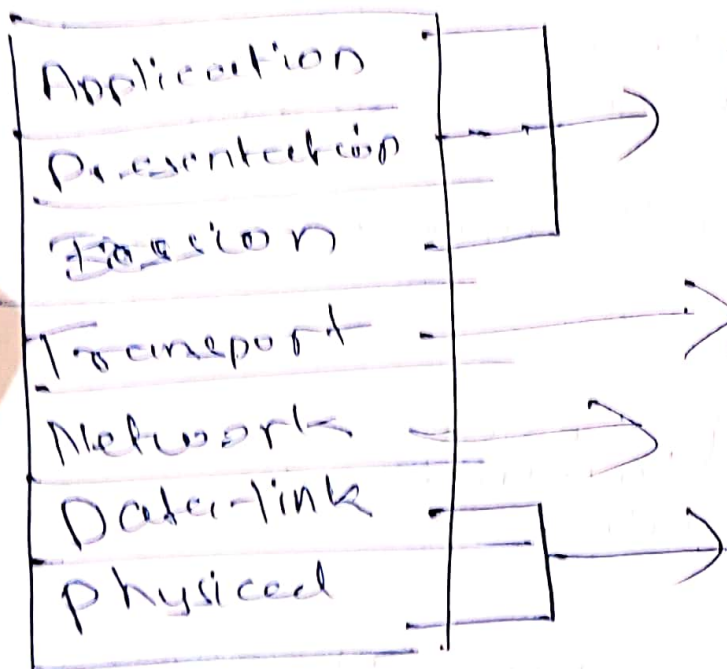 Application
Presentation
Session
Transport
Network
Data-link
Physical